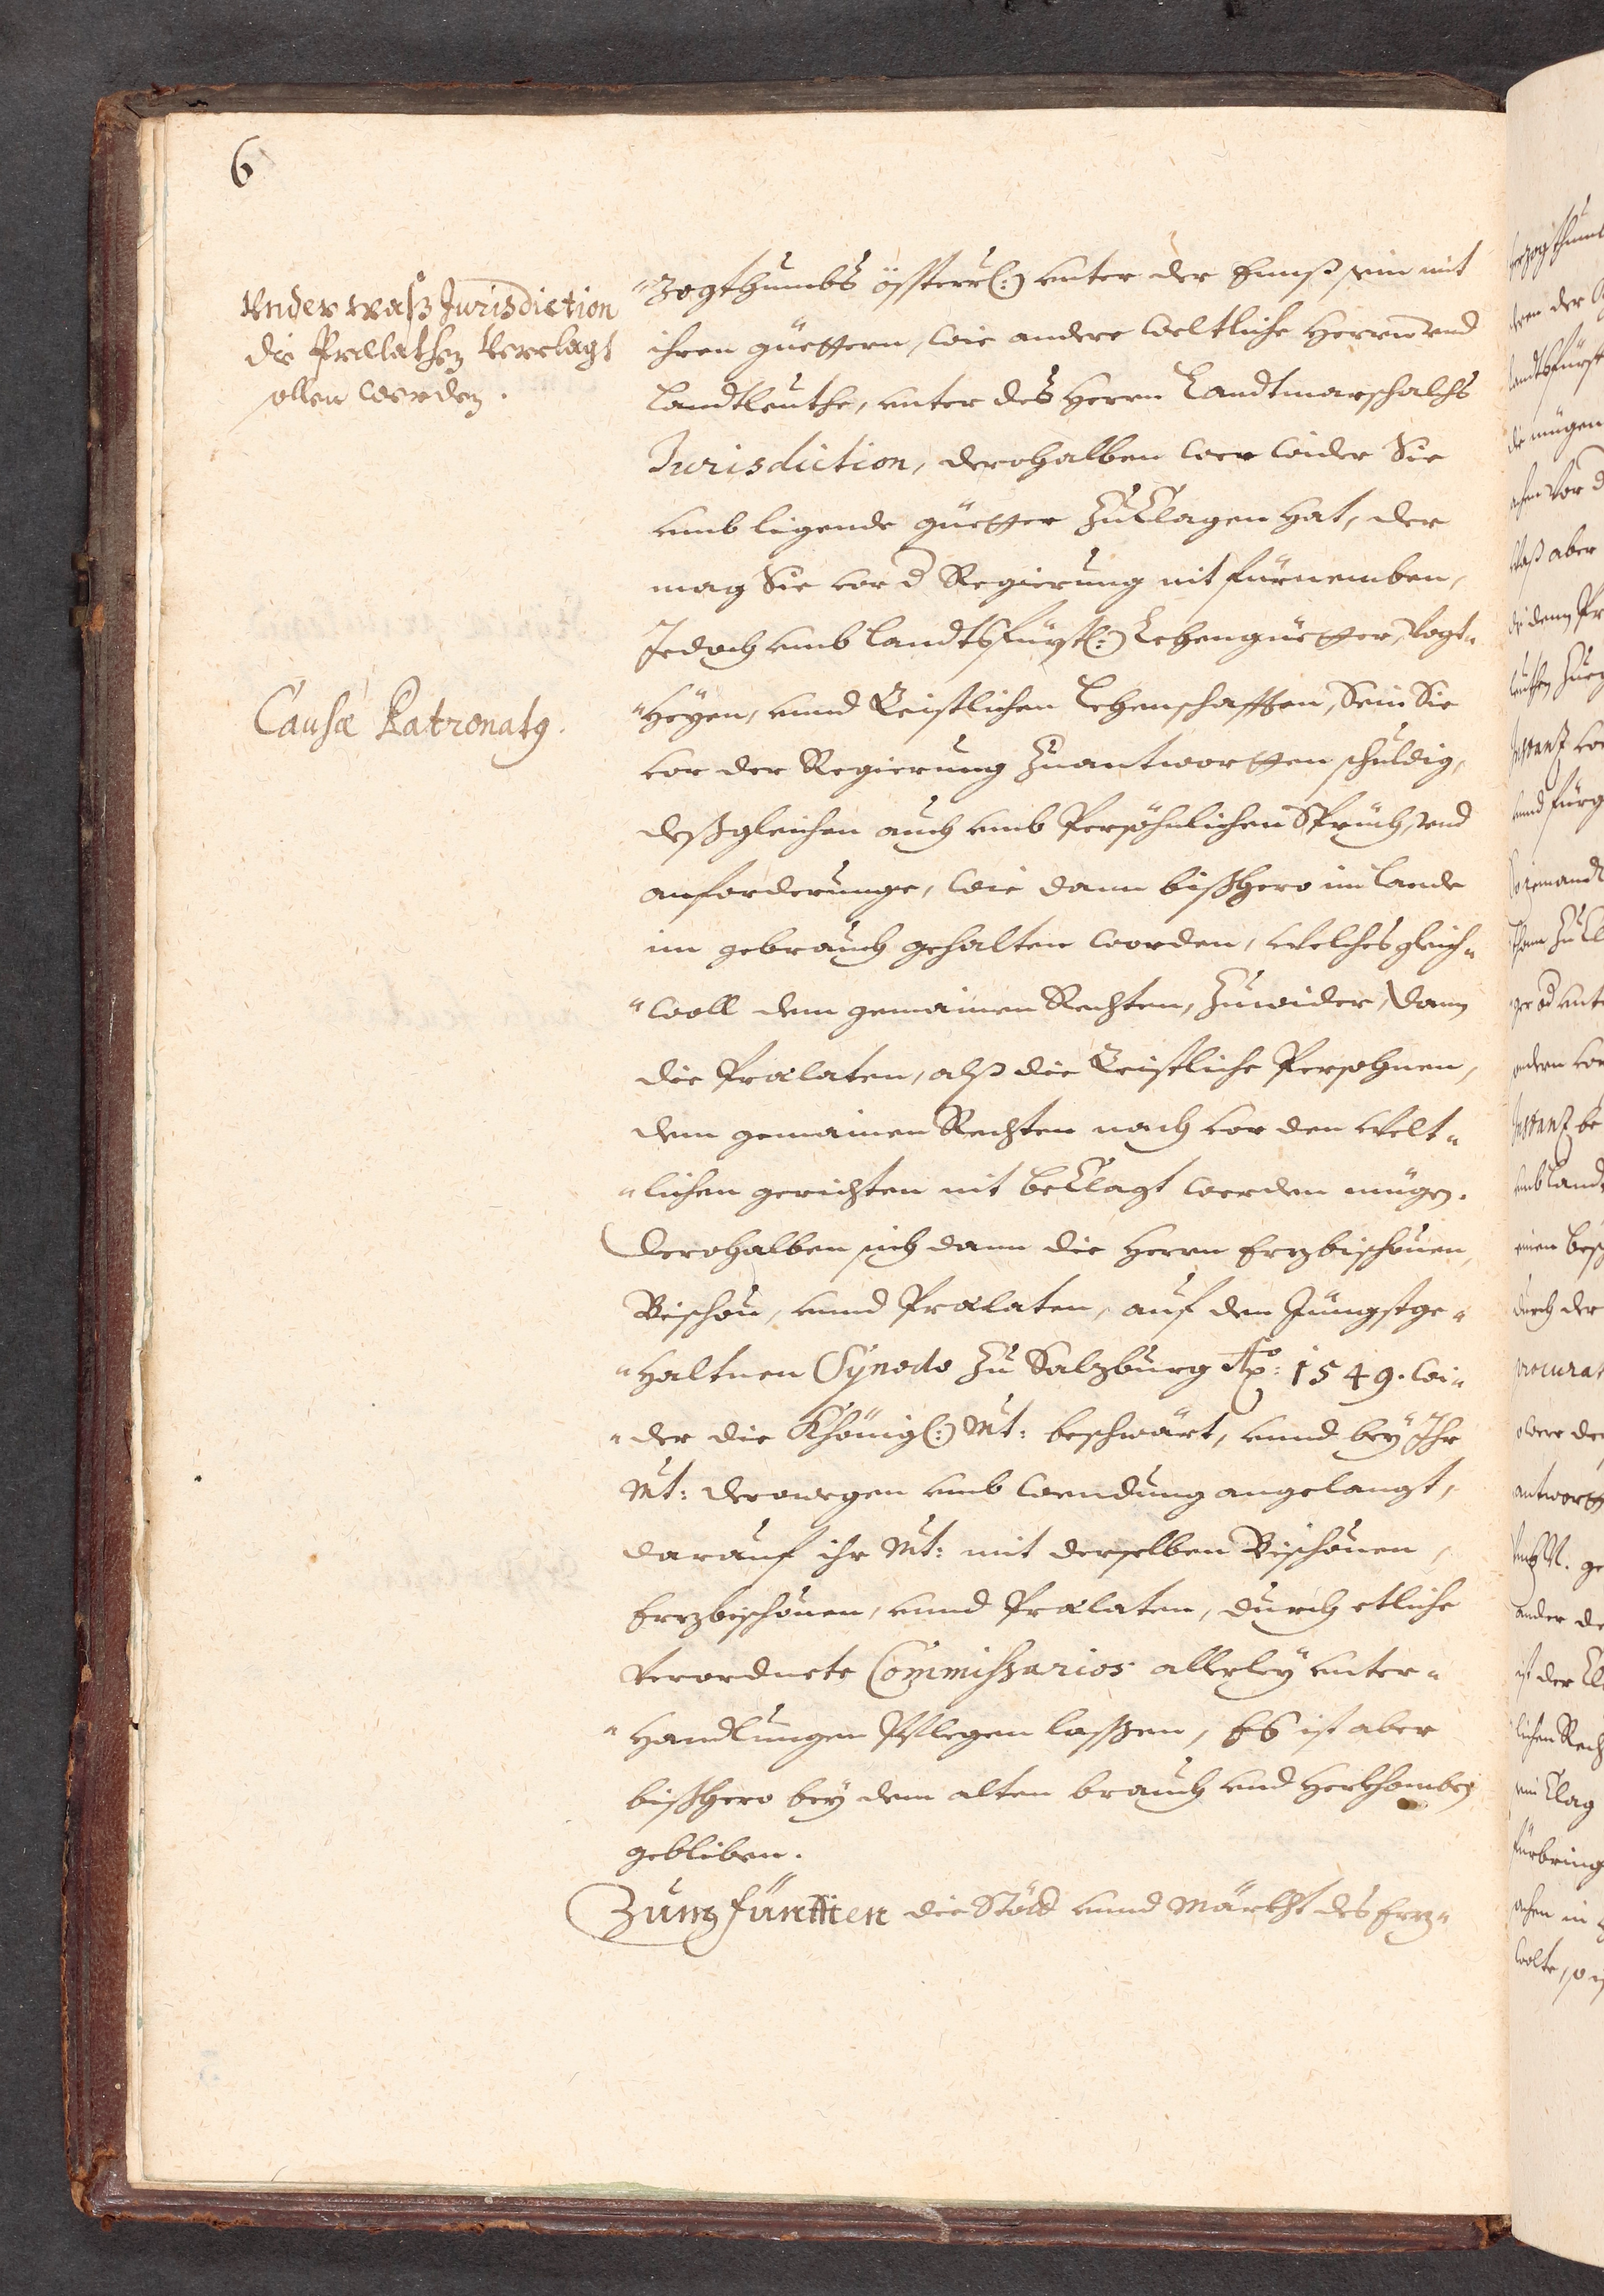 6
Vnder waß Jurisdiction
die Prælathen Verclagt
sollen werden.
"zogthumbs össterr(:) vnter der Ennß sein mit
ihren güettern, wie andere weltliche Herrn vnd
Landtleuthe, vnter des Herrn Landtmarschalchs
Jurisdiction, derohalben wer wider Sie
vmb ligende güetter Zu Clagen hat, der
mag Sie vor d Regierung nit fürnemben,
Jedoch vmb Landtsfürstl(:) Lehengüetter, Vogt"
Causæ Patronatg.
"heyen, vnnd Geistlichen Lehenschafften, Sein Sie
vor der Regierung Zuantwortten schuldig,
deßgleichen auch vmb Persöhnlichen Sprüch, vnd
anforderunge, wie dann bißhero im Lande
im gebrauch gehalten worden, welches gleich"
"woll dem gemainen Rechten, Zuwider, dann
die Prælaten, alß die Geistliche Persohnen,
dem gemainen Rechten nach vor den Welt"
"lichen gerichten nit beclagt werden mügen.
Derohalben sich dann die Herrn Erzbischouen,
Bischou, vnnd Prælaten, auf den Jüngstge"
"haltnen Synodo Zu Salzburg Aō: 1549. wi"
"der die Khönigl(:) Mt: beschwärt, vnnd bey Ihr
Mt: derowegen vmb wendung angelangt,
darauf ihr Mt: mit derselben Bischouen,
Erzbischouen, vnnd Prælaten, durch etliche
Verordnete Commissarios allerley vnter"
"handlungen Pflegen lassen, Es ist aber
bißhero bey dem alten brauch vnd Herkhomben
gebliben.
Zum Fünfften die Stött vnnd Märkht des Erz"